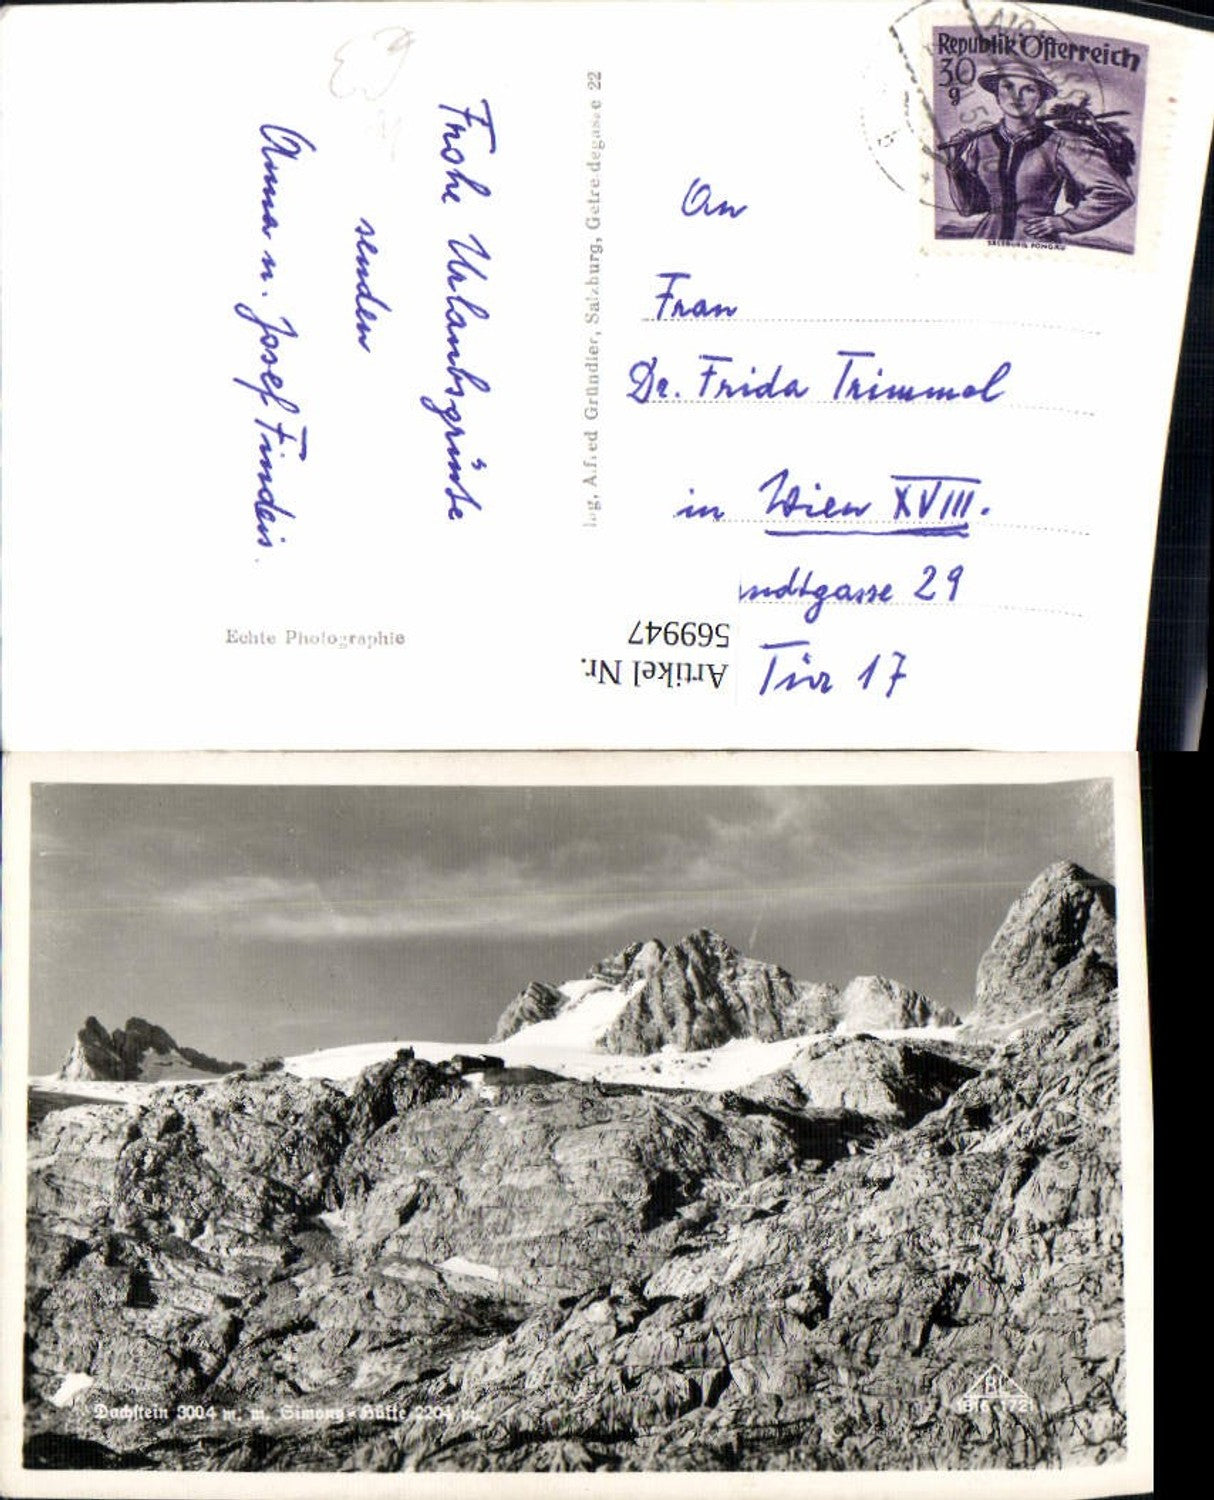 Frohe Urlaubsgrüße
senden
Anna u. Josef Findeis.
Echte Photographie
Ing. Alfred Gründler, Salzburg, Getreidegasse 22
Republik Österreich
30
g
SALZBURG, PONGAU
An
Frau
Dr. Frida Trimmel
in Wien XVIII.
ndtgasse 29
Tür 17
Artikel Nr.
569947
Dachstein 3004 m. m. Simony-Hütte 2204 m.
BL
1816 1721